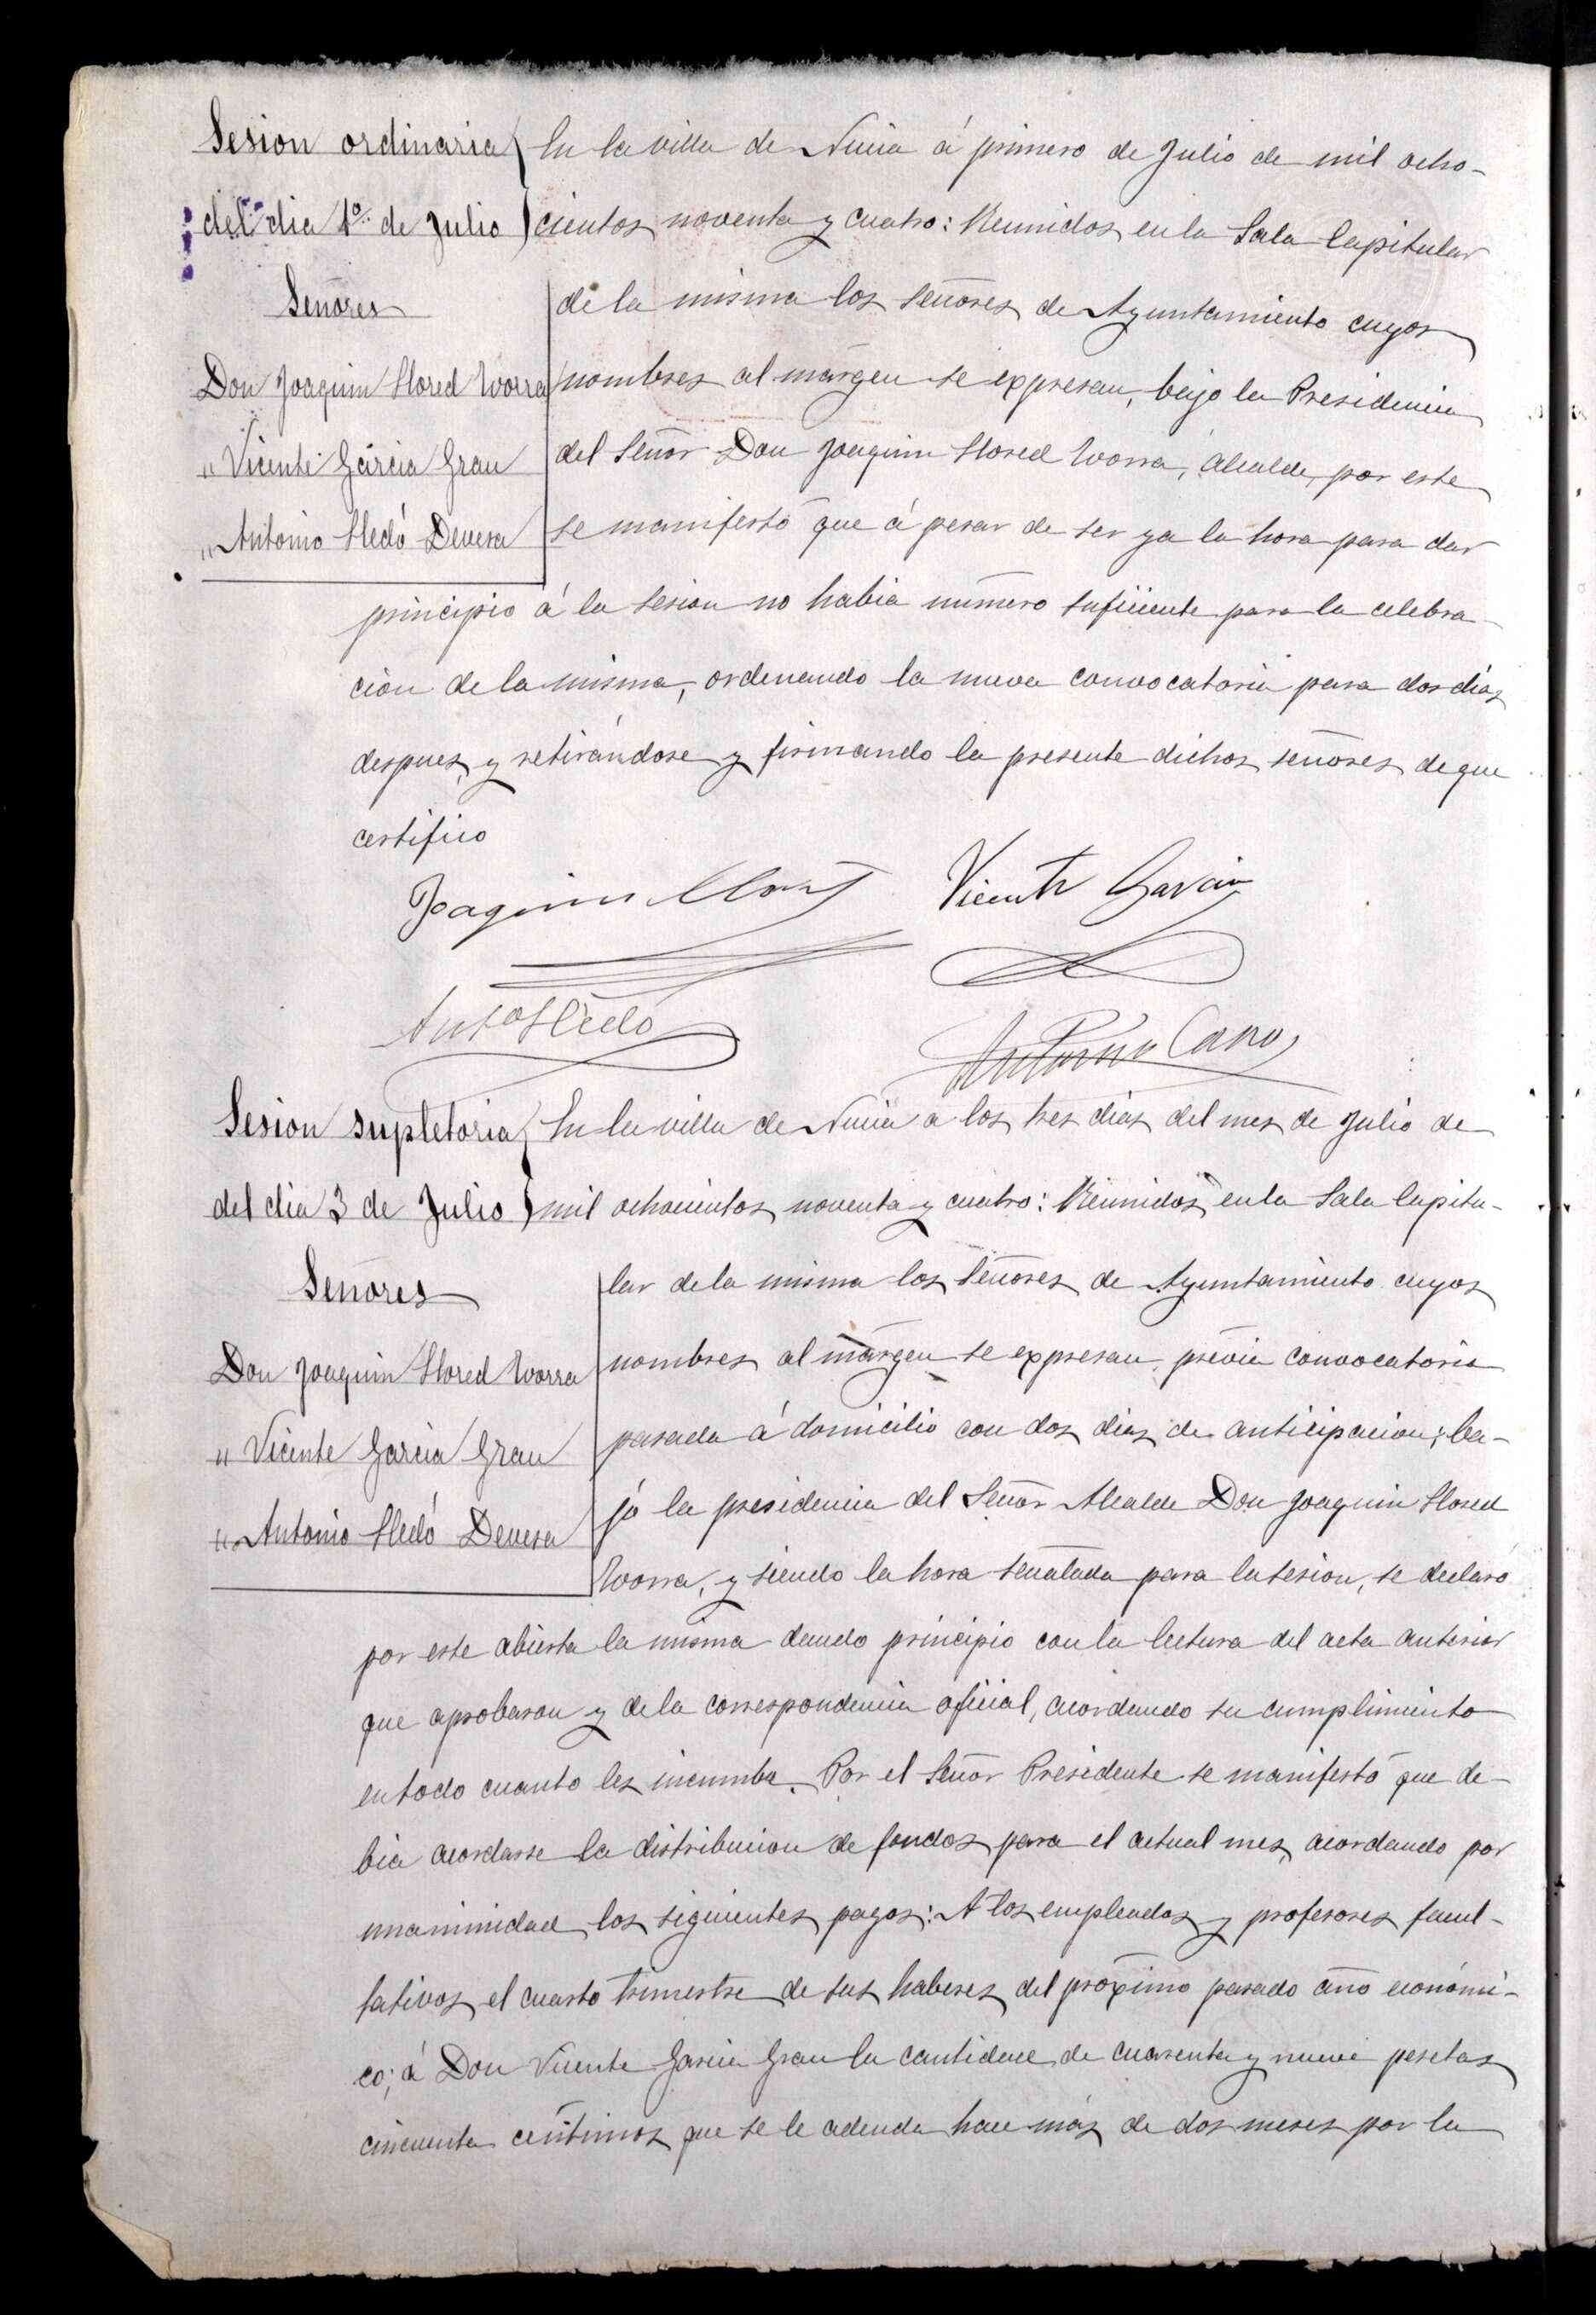 Sesion ordinaria
del dia 1º de Julio
Señores
Don Joaquin Llored Worra
" Vicente Garcia Grau
" Antonio Lledó Devesa
En la villa de Nucia á primero de Julio de mil ocho-
cientos noventa y cuatro: Reunidos en la Sala Capitular
de la misma los Señores de Ayuntamiento cuyos
nombres al márgen se expresan, bajo la Presidencia
del Señor Don Joaquin Llored Worra, Alcalde, por este
se manifestó que á pesar de ser ya la hora para dar
principio á la sesion no habia número suficiente para la celebra-
cion de la misma, ordenando la nueva convocatoria para dos dias
despues, y retirándose y firmando la presente dichos señores de que
certifico
Joaquin Llored Vicente Garcia
Antº Lledó Antonio Cano
Sesion supletoria
del dia 3 de Julio
Señores
Don Joaquin Llored Worra
" Vicente Garcia Grau
" Antonio Lledó Devesa
En la villa de Nucia a los tres dias del mes de Julio de
mil ochocientos noventa y cuatro: Reunidos en la Sala Capitu-
lar de la misma los Señores de Ayuntamiento cuyos
nombres al márgen se expresan, prévia convocatoria
pasada á domicilio con dos dias de anticipacion; ba-
jo la presidencia del Señor Alcalde Don Joaquin Llored
Worra, y siendo la hora señalada para la sesion, se declaró
por este abierta la misma dando principio con la lectura del acta anterior
que aprobaron y de la correspondencia oficial, acordando su cumplimiento
en todo cuanto les incumbe. Por el Señor Presidente se manifestó que de-
bia acordarse la distribucion de fondos para el actual mes, acordando por
unanimidad los siguientes pagos: A los empleados y profesores facul-
tativos el cuarto trimestre de sus haberes del próximo pasado año económi-
co; á Don Vicente Garcia Grau la cantidad de cuarenta y nueve pesetas
cincuenta céntimos que se le adeuda hace más de dos meses por la